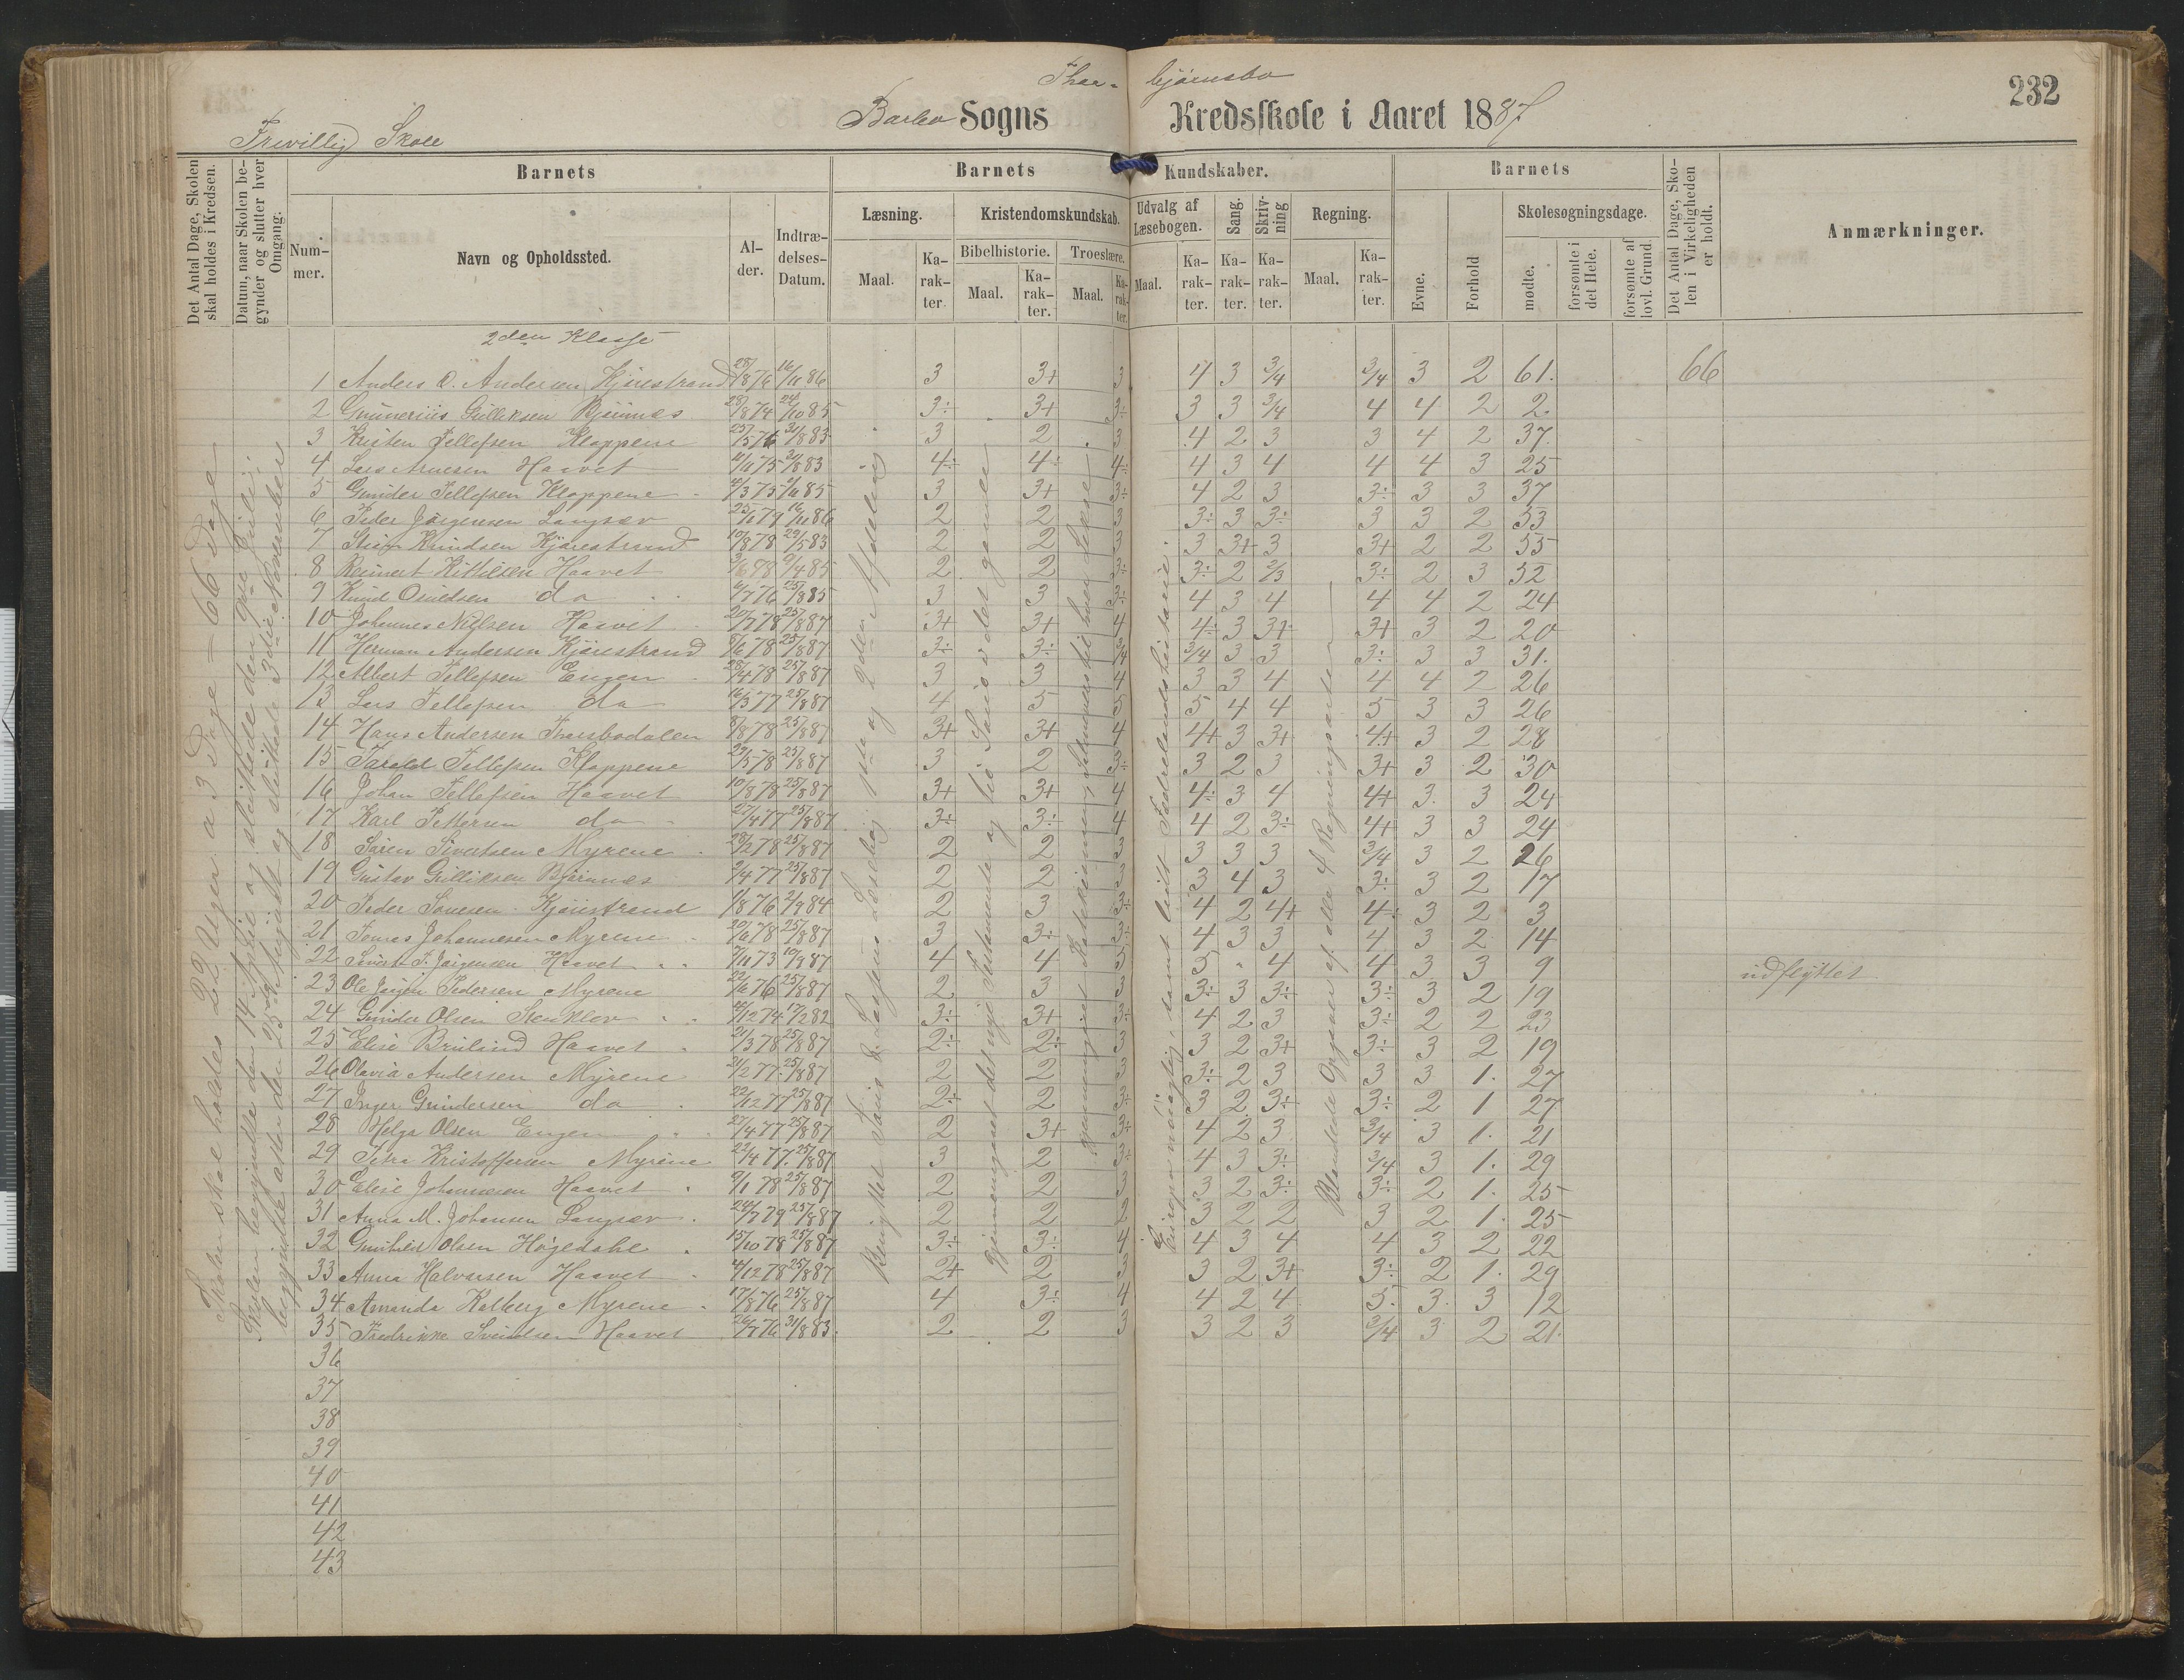 232
Thor- bjørnsbo
Barbo Sogns Kredsskole i Aaret 1887.
Frivillig Skole
Det Antal Dage, Skolen skal holdes i Kredsen.
Datum, naar Skolen begynder og slutter hver Omgang.
Barnets
Nummer.
Navn og Opholdssted.
Alder.
Indtrædelses-Datum.
Barnets Kundskaber.
Læsning.
Maal.
Karakter.
Kristendomskundskab.
Bibelhistorie.
Maal.
Karakter.
Troeslære.
Maal.
Karakter.
Udvalg af Læsebogen.
Maal.
Karakter.
Sang.
Karakter.
Skrivning
Karakter.
Regning.
Maal.
Karakter.
Barnets
Evne.
Forhold
Skolesøgningsdage.
mødte.
forsømte i det Hele.
forsømte af lovl. Grund.
Det Antal Dage, Skolen i Virkeligheden er holdt.
Anmærkninger.
Skolen skal holdes 22 Uger a 3 Dage = 66 Dage
Skolen begyndte den 14 April og sluttede den 9de Juli.
begyndte atter den 25de August og sluttede 3die November
Benyttet Jensens Læsebog 1ste og 2den Afdeling
Gjennemgaaet det nye Testamente og lidt i det gamle
Blandede Opgaver af alle 4 Regningsarter
2den Klasse
1 Anders O. Andersen Kjørestrand 28/8 76 16/11 86 3 3+ 3 4 3 3/4 3/4 3 2 61. 66
2 Gunerius Gulliksen Bjørnnes 28/8 74 24/10 85 3÷ 3+ 3÷ 3 3 3/4 4 4 2 2
3 Kristen Tellefsen Kloppene 25/5 76 31/8 83 3 2 3 4 2 3 3 4 2 37.
4 Lars Arnesen Haavet 11/11 75 31/8 83 4÷ 4÷ 4÷ 4 3 4 4 4 3 25
5 Gunder Tellefsen Kloppene 4/3 75 2/11 85 3 3+ 3÷ 4 2 3 3÷ 3 3 37
6 Peder Jørgensen Langsæv 79 16/11 86 2 2 3 3÷ 3 3÷ 3 3 2 53
7 Knudsen Kjørestrand 10/8 78 29/5 83 2 2 3 3 3+ 3 3+ 2 2 55
8 Reinert Kittilsen Haavet 9/4 85 2 2 3÷ 3÷ 2 2/3 3÷ 2 3 52
9 Knud Osuldsen do 4/7 76 25/8 85 3 3 3÷ 4 3 4 4 4 2 24
10 Johannes Nilsen Haavet 20/7 78 25/8 87 3+ 3+ 4 4÷ 3 3+ 3+ 3 2 20
11 Herman Andersen Kjørestrand 8/6 78 25/8 87 3÷ 3÷ 3/4 3/4 3 3 3÷ 3 3 31.
12 Albert Tellefsen Engen 28/4 78 25/8 87 3 3 4 3 3 4 4 4 2 26
13 Lars Tellefsen do 16/3 77 25/8 87 4 5 5 5 4 4 5 3 3 26
14 Hans Andersen Thorsbodalen 8/8 78 25/8 87 3+ 3+ 4 4+ 3 3+ 4+ 3 2 28
15 Tarald Tellefsen Kloppene 29/5 78 25/8 87 3 2 3÷ 3 2 3 3+ 3 2 30
16 Johan Tellefsen Haavet 10/8 78 25/8 87 3+ 3+ 4 4÷ 3 4 4+ 3 3 24
17 Karl Pettersen do 27/4 77 25/8 87 3÷ 3÷ 4 4 2 3÷ 4+ 3 3 24
18 Søren Sivertsen Myrene 28/2 78 25/8 87 2 2 3 3 3 3 3/4 3 2 26
19 Gustav Gulliksen Bjørnnes 9/4 77 25/8 87 2 2 3 3 4 3 3÷ 3 2 17
20 Peder Sørensen Kjørestrand 1/8 76 2/9 84 2 3 3÷ 4 2 4+ 4÷ 3 2 3
21 Tomas Johannesen Myrene 20/6 78 25/8 87 3 3÷ 3÷ 4 3 3 4 3 2 14
22 T. Jørgensen Haavet 7/11 73 10/9 87 4 4 5 5 4 4 3 3 9 udflyttet
23 Ole Jørgen Pedersen Myrene 22/6 76 25/8 87 2 3 3 3÷ 3 3÷ 3÷ 3 2 19
24 Gunder Olsen Stenklov 12 74 2 82 3÷ 3+ 3÷ 4 2 3 3÷ 2 2 23
25 Elise Haavet 21/3 78 25/8 87 2÷ 2÷ 3 3 2 3+ 3÷ 3 2 19
26 Olavia Andersen Myrene 21/2 77 25/8 87 2 2 3 3÷ 2 3 3 3 1. 27
27 Inger Gundersen do 22/12 77 25/8 87 2÷ 2 3÷ 3 2 3+ 3÷ 2 1 27
28 Helga Olsen Engen 27/4 77 25/8 87 2 3+ 3÷ 4 2 3 3/4 3 1. 21
29 Petra Kristoffersen Myrene 22/4 77. 25/8 87 3 2 3÷ 4 3 3÷ 3/4 3 1. 29
30 Elise Johannesen Haavet 9/1 78 25/8 87 2 2 3 3 2 3÷ 3÷ 2 1. 25
31 Anna M. Johansen Langsæv 24/7 79 25/8 87 2 2 2 3 2 2 3 2 1. 25
32 Gunhild Olsen Høgedahl 15/10 78 25/8 87 3÷ 3÷ 4 4 3 4 4 3 2 22
33 Anna Halvorsen Haavet 4/12 78 25/8 87 2+ 2 3 3 2 3+ 3÷ 2 1. 29
34 Amanda Kalberg Myrene 17/8 76 25/8 87 4 3÷ 4 4 2 4 5. 3. 3 12
35 Fredrikke Svendsen Haavet 26/7 76 31/8 83. 2 2 3 3 2 3 3/4 3 2 21.
36
37
38
39
40
41
42
43